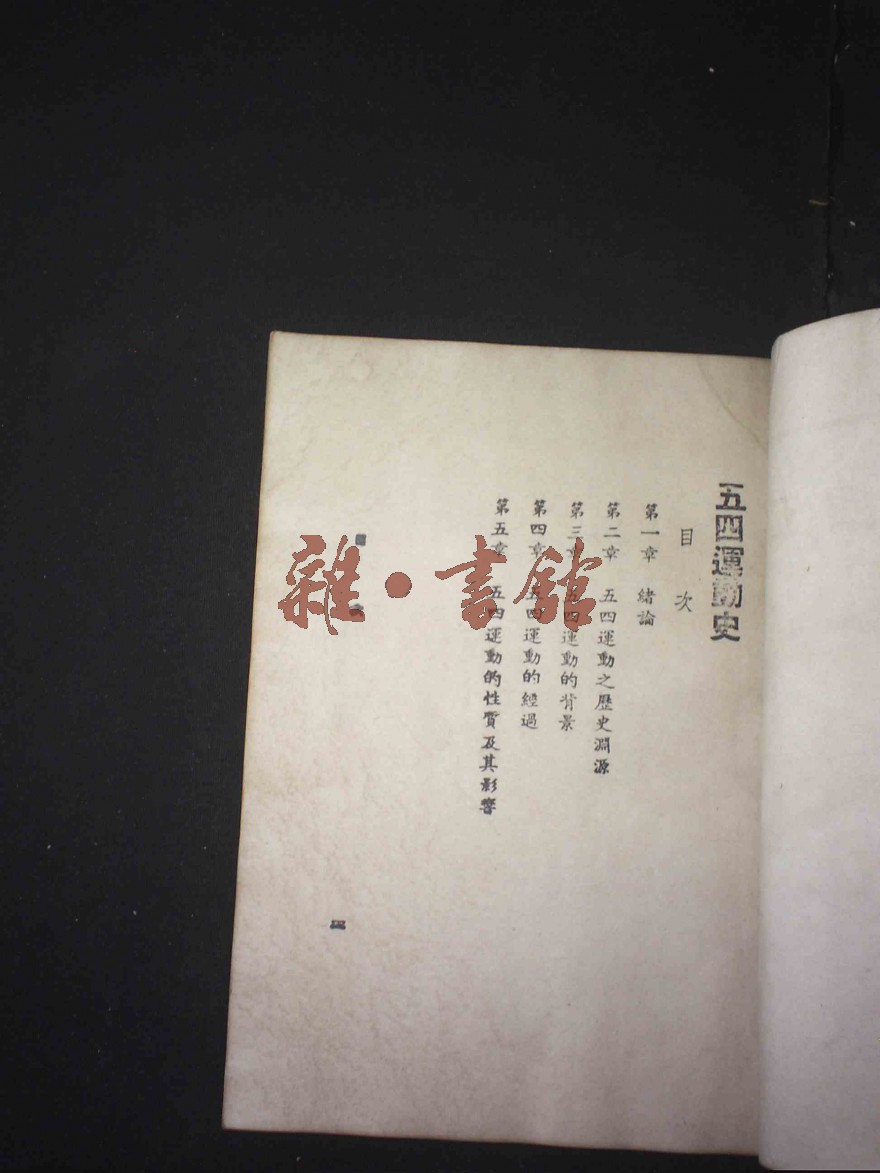 五四運動史
目次
第一章 緒論
第二章 五四運動之歷史淵源
第三章 五四運動的背景
第四章 五四運動的經過
第五章 五四運動的性質及其影響
雜·書館